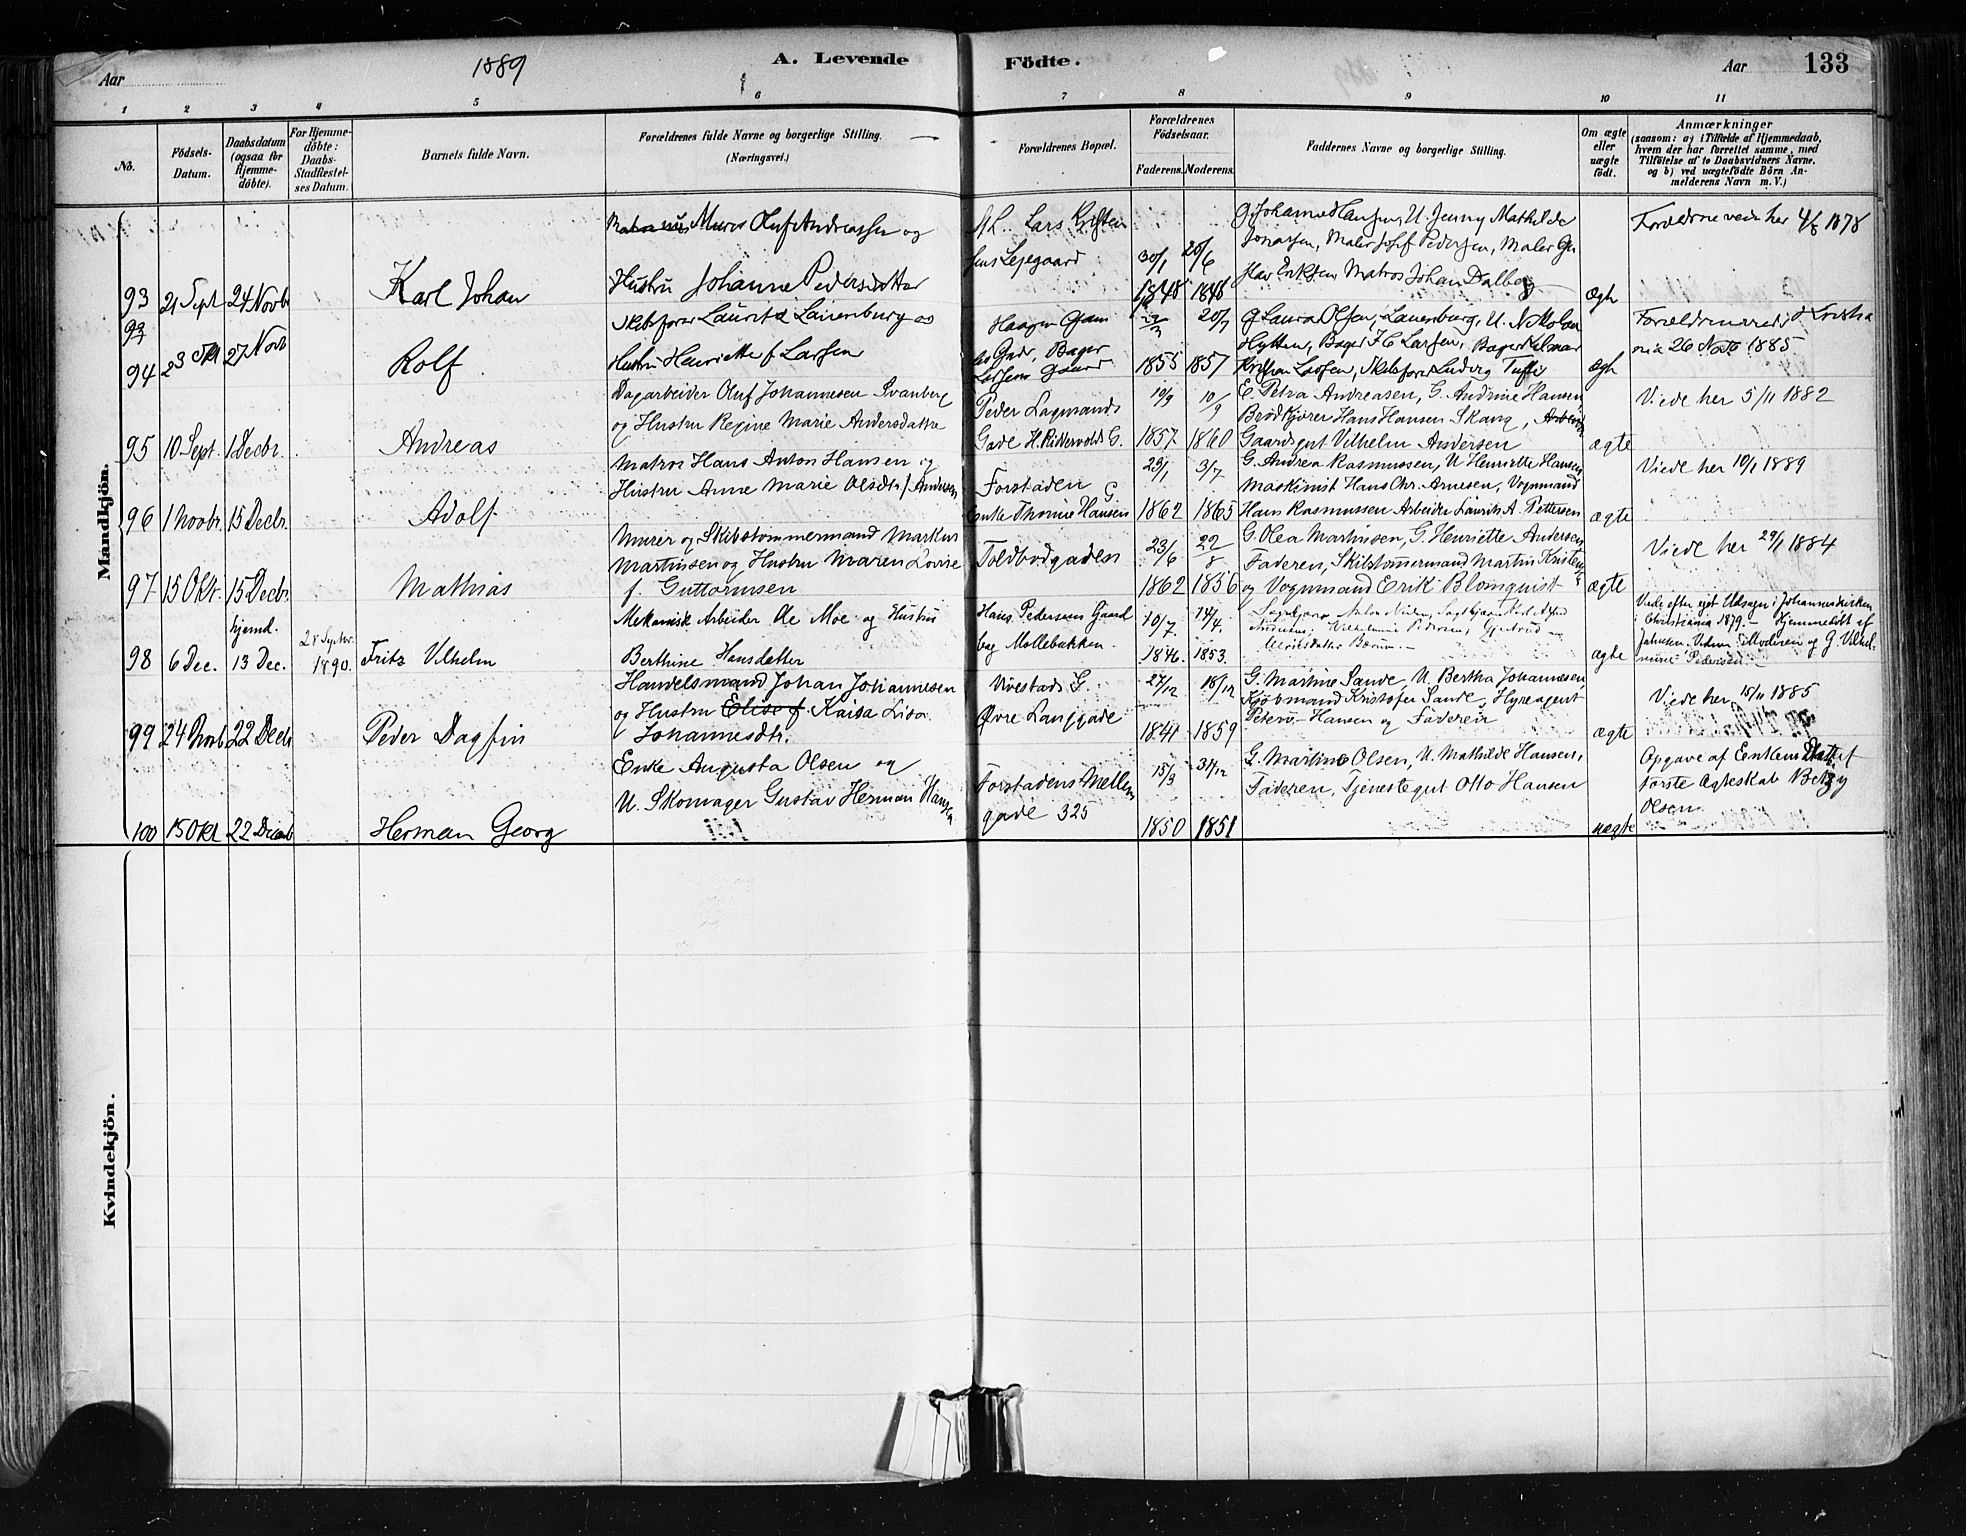 Aar 1889 A. Levende Födte. Aar 133
1 2 3 4 5 6 7 8 9 10 11
No.
Födsels-Datum.
Daabsdatum (ogsaa for Hjemmedöbte).
For Hjemmedöbte: Daabs-Stadfæstelses Datum.
Barnets fulde Navn.
Forældrenes fulde Navne og borgerlige Stilling. (Næringsvei.)
Forældrenes Bopæl.
Forældrenes Födselsaar.
Faderens. Moderens.
Faddernes Navne og borgerlige Stilling.
Om ægte eller uægte födt.
Anmærkninger
(saasom: a) i Tilfælde af Hjemmedaab,
hvem der har forrettet samme, med
Tilföielse af to Daabsvidners Navne,
og b) ved uægtefödte Börn An-
melderens Navn m. V.)
Mandkjön.
93 21 Sept 24 Novb Karl Johan
Murer Oluf Andreassen og
Hustru Johanne Pedersdatter
Lars
Lejegaard
30/1 1848 20/6 1848
G Johanne Hansen, U. Jenny Mathilde
Jonassen, Maler Josef Pedersen, Maler Gu
stav Eriksen Matros Johan Dalberg
ægte
Forældrene viede her 4/8 1878
93
94 23 Okt 27 Novr Rolf
Skibsfører Lauritz Lauenburg og
Hustru Henriette f. Larsen
Haagen Gam
les Gade, Bager
Larsens Gaard
1855 20/7 1857
G Laura Olsen, Lauenburg, U. Nikoline
Hytten, Bager F C Larsen, Bager Hilmar
Kristian Larsen, Skibsfører Ludvig Tufte
ægte
Forældrene viede i Kristia
nia 26 Novb 1885
95 10 Sept. 1 Decbr. Andreas
Dagarbeider Oluf Johannesen Svanberg
og Hustru Regine Marie Andersdatter
Peder Lagmands
Gade H. Riddervolds G.
19/9 1857 10/9 1860
E. Petra Andreasen, G. Andrine Hansen
Brødkjører Hans Hansen Skaug, Arbeider
Gaardsgut Vilhelm Andersen
ægte
Viede her 5/11 1882
96 1 Novbr. 15 Decbr. Adolf
Matros Hans Anton Hansen og
Hustru Anne Marie Olsdtr f. Andersen
Forstaden G
Enke Thorine Hansen
29/1 1862 3/7 1865
G. Andrea Rasmussen, U Henriette Hansen
Maskinist Hans Chr. Arnesen, Vognmand
Hans Rasmussen Arbeider Laurits A. Pettersen
ægte
Viede her 10/1 1889
97 15 Oktr. 15 Decbr. Mathias
Murer og Skibstømmermand Markus
Martinsen og Hustru Maren Lovise
f. Guttormsen
Toldbodgaden
23/6 1862 22/8 1856
G. Olea Martinsen, G. Henriette Andersen
Faderen, Skibstømmermand Martin Kristens
og Vognmand Erik Blomquist
ægte
Viede her 29/1 1884
98 6 Dec. hjemd. 13 Dec. 28 Septbr. 1890. Fritz Vilhelm
Mekanisk Arbeider Ole Moe og Hustru
Berthine Hansdatter
Hans Pedersens Gaard
bag Møllebakken.
10/7. 1846. 14/4. 1853.
Vilhelmine Pedersen, Gjertrud
ægte
Viede efter eget Udsagn i Johanneskirken
i Christiania 1879. Hjemmedöbt af
Moderen og G. Vilhel-
mine Pedersen.
99 24 Novb. 22 Decbr Peder Dagfin
Handelsmand Johan Johannesen
og Hustru Elise f. Kaisa Lisa
Johannesdtr.
Vivestads G.
Øvre Langgade
27/12 1841 18/12 1859
G. Martine Sande, U. Bertha Johannesen
Kjöbmand Kristofer Sande, Hyreagent
Peters. Hansen og Faderen
ægte
Viede her 15/11 1885
100 15 Okt 22 Decb Herman Georg
Enke Augusta Olsen og
U. Skomager Gustav Herman Hansen
Forstadens Mellem
gade 325
15/3 1850 31/12 1851
G. Martine Olsen, U. Mathilde Hansen,
Faderen, Tjenestegut Otto Hansen
uægte
Opgave af Enkens Datter af
første Ægteskab Betzy
Olsen
Kvindekjön.